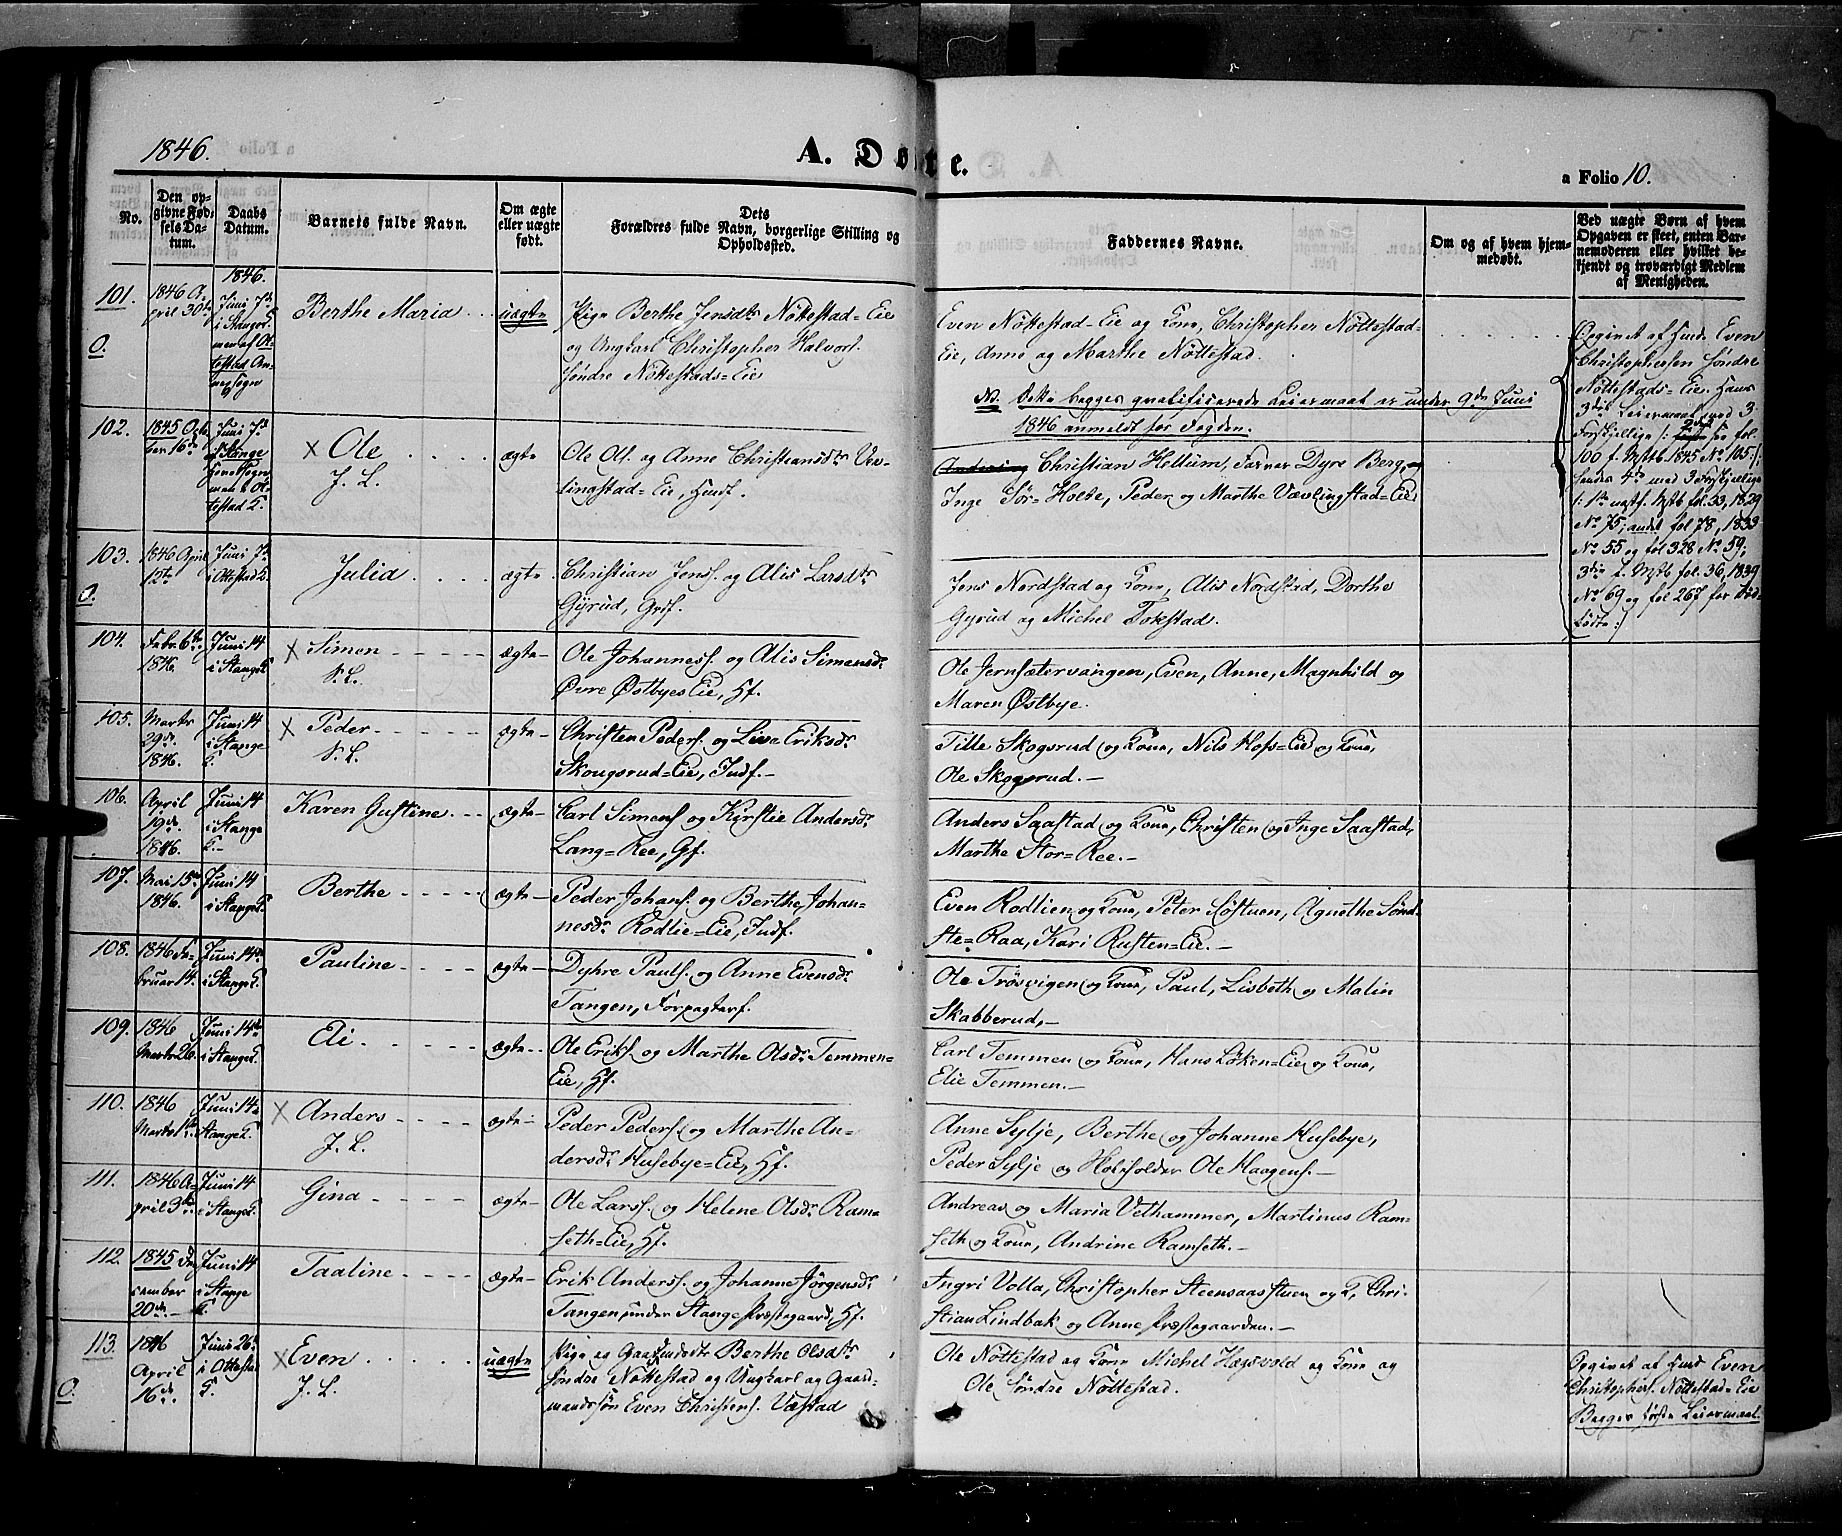 1846.
A. Døbte.
a Folio 10.
No.
Den opgivne Fødsels Datum.
Daabs Datum.
Barnets fulde Navn.
Om ægte eller uægte født.
Dets Forældres fulde Navn, borgerlige Stilling og Opholdssted.
Faddernes Navne.
Om og af hvem hjemmedøbt.
Ved uægte Børn af hvem Opgaven er skeet, enten Barnemoderen eller hvilket bekjendt og troværdigt Medlem af Menigheden.
1846.
101.
O.
1846 April 30te
Juni 7de i Stange
Berthe Maria
uægte
Pige Berthe Jensdtr Nöttestad=Eie
og Ungkarl Christopher Halvors.
Søndre Nöttestads=Eie
Even Nöttestad=Eie og Kone, Christopher Nöttestad=
Eie, Anne og Marthe Nöttestad.
NB. Dette begges qvalificerede Leiermaal er under 9de Juni
1846 anmeldt for Fogden.
Opgivet af Huusm. Even
Christophersen Søndre
Nöttestads=Eie. Hans
3die Leiermaal med 3
Forskjellige
100 f. 1845 No. 105
hendes 4de med 3 Forskjellige
fol. 33, 1829
No. 75, andet fol 78, 1833
No 55 og fol 328 No. 59;
3die fol. 36, 1839
No. 69 og fol 267 for
102.
1845 October 16de
Juni 7de
X Ole
J. L.
ægte
Ole Ols. og Anne Christiansdtr Væv=
lingstad=Eie, Huusf.
Christian Hellum, Farver Dyre Berg,
Inge Sør=Holte, Peder og Marthe Vævlingstad=Eie
103.
O.
1846 April 15te
Juni 7de i Ottestad K.
Julia
ægte
Christian Jens. og Alis Larsdtr
Gyrud, Grdf.
Jens Nordstad og Kone, Alis Nordstad, Dorthe
Gyrud og Michel Tokstad.
104.
Febr. 6te 1846.
Juni 14 i Stange K.
X Simen
S. L.
ægte
Ole Johanness. og Alis Simensdr
Øvre Østbyes Eie, Hf.
Ole Jernsætervangen, Even, Anne, Magnhild og
Maren Østbye.
105.
Marts 29de 1846.
Juni 14 i Stange K.
X Peder
S. L.
ægte
Christen Peders. og Live Eriksdr
Skougsrud=Eie, Indf.
Tille Skogsrud og Kone, Nils Hofs=Eie og Kone,
Ole Skogsrud.
106.
April 19de 1846.
Juni 14 i Stange K.
Karen Gustine
ægte
Carl Simens. og Kirstie Andersdr
Lang=Ree, Gf.
Anders Saastad og Kone, Christen og Inge Saastad,
Marthe Stor=Ree.
107.
Mai 15de 1846.
Juni 14 i Stange K.
Berthe
ægte
Peder Johans. og Berthe Johan=
nesdr Rodlie=Eie, Indf.
Even Rodlien og Kone, Peter Søstuen, Agnethe Sønd
ste=Raa, Kari Rusten=Eie.
108.
1846 Februar 14.
Juni 14de i Stange K.
Pauline
ægte
Dyhre Pauls. og Anne Evensdr
Tangen, Forpagterf.
Ole Trøsvigen og Kone, Paul, Lisbeth og Malin
Skabberud,
109.
1846 Marts 26.
Juni 14de i Stange K.
Eli
ægte
Ole Eriks. og Marthe Olsdr Temmen=
Eie, Hf.
Carl Temmen og Kone, Hans Løken=Eie og Kone,
Elie Temmen.
110.
1846 Marts 1te
Juni 14de Stange K.
X Anders
J. L.
ægte
Peder Peders. og Marthe An=
dersdr Husebye=Eie, Hf.
Anne Sylje, Berthe og Johanne Husebye,
Peder Sylje og Ole Haagens.
111.
1846 April 3de
Juni 14 i Stange K.
Gina
ægte
Ole Larss. og Helene Olsdr Ram
seth=Eie, Hf.
Andreas og Maria Vethammer, Martinus Ram=
seth og Kone, Andrine Ramseth.
112.
1845 December 20de
Juni 14 i Stange K.
Taaline
ægte
Erik Anderss. og Johanne Jörgensdr
Tangen, under Stange Præstegaard, Hf.
Ingri Volla, Christopher Steensaasstuen og K, Chri=
stian Lindbak og Anne Præstegaarden.
113.
O.
1846 April 16de
Juni 26de i Ottestad K.
X Even
J. L.
uægte
Pige og Berthe Olsdtr
Søndre Nöttestad og Ungkarl og Gaard=
mandssön Even Christens. Væstad
Ole Nöttestad og Kone Michel Hægsvold og Kone og
Ole Söndre Nöttestad.
Opgivet af Huusm. Even
Christophers. Nöttestad=Eie
Begges første Leiermaal.